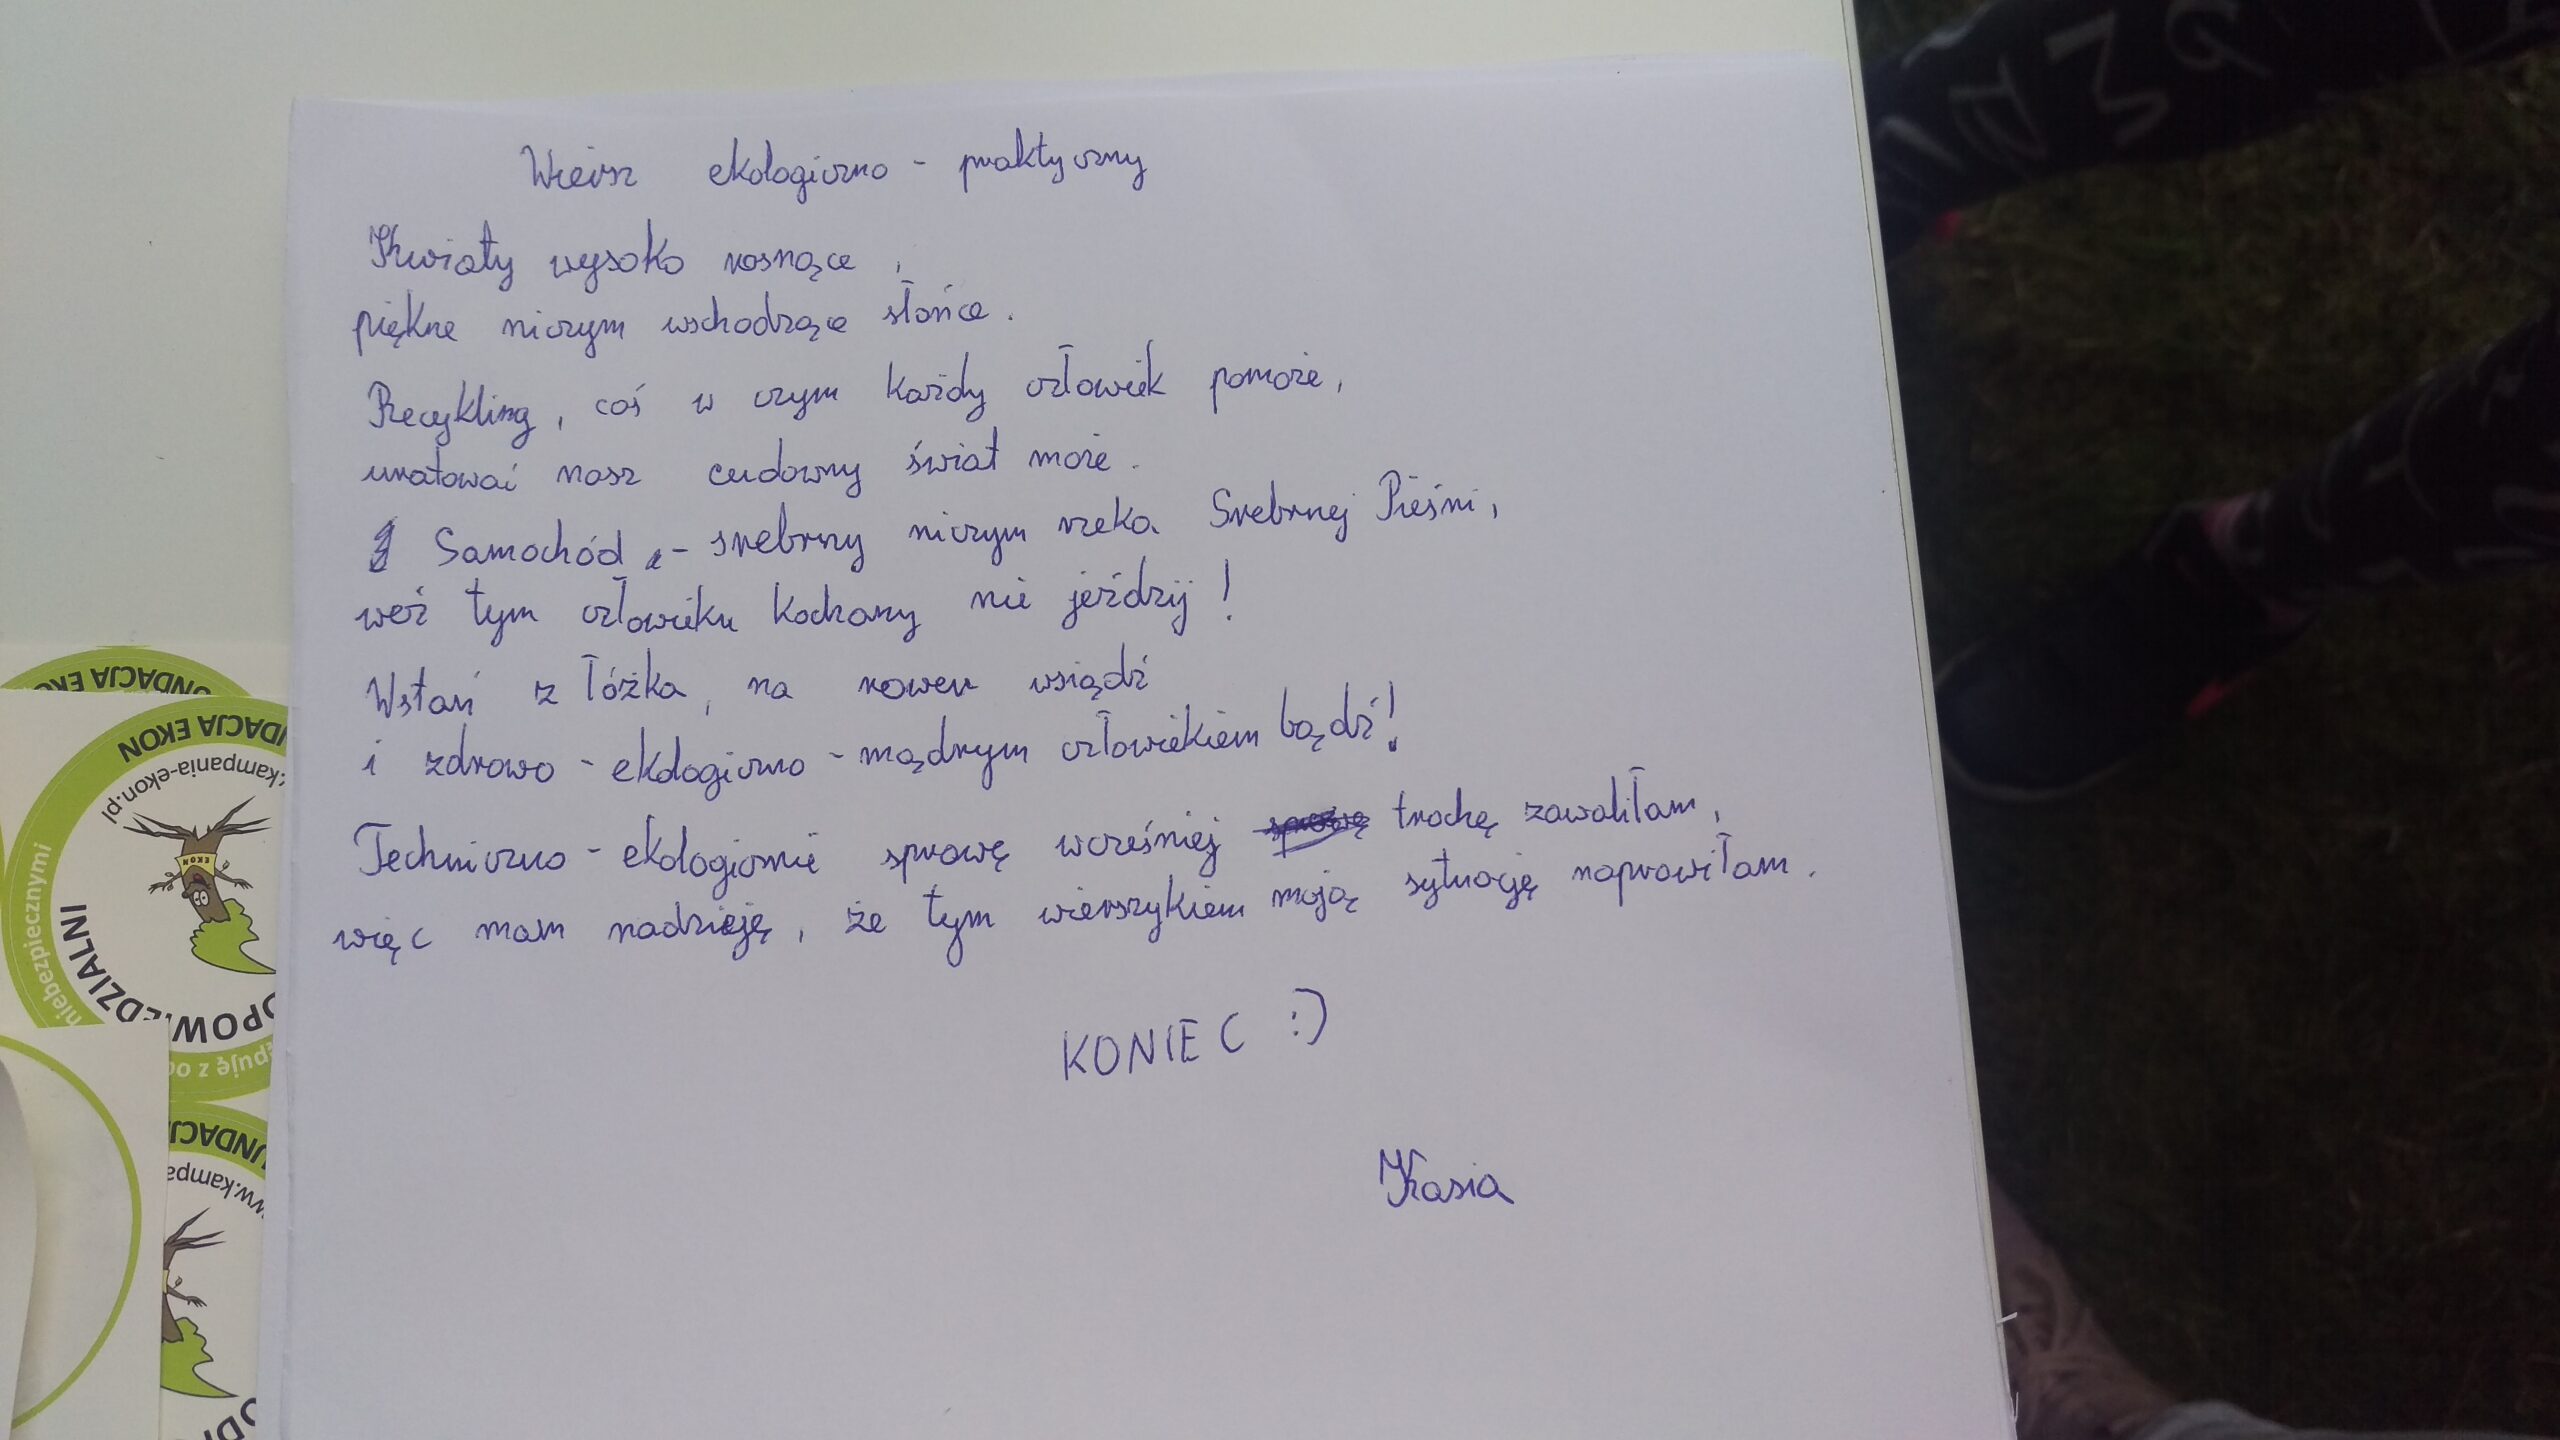 Wiersz ekologiczno - praktyczny
Kwiaty wysoko rosnące,
piękne niczym wschodzące słońce.
Recykling, coś w czym każdy człowiek pomoże,
uratować nasz cudowny świat może.
Samochód - srebrny niczym rzeka Srebrnej Pieśni,
weź tym człowieku kochany nie jeździj!
Wstań z łóżka, na rower wsiądź
i zdrowo - ekologiczno - mądrym człowiekiem bądź!
Techniczno - ekologicznie sprawę wcześniej trochę zawaliłam,
więc mam nadzieję, że tym wierszykiem moją sytuację naprawiłam.
KONIEC :)
Kasia
FUNDACJA EKO
NDACJA EKON
.kampania-ekon.pl
EKON
niebezpiecznymi
OPOWIEDZIALNI
ępuję z od
UNDACJ
ww.kampa
ODP